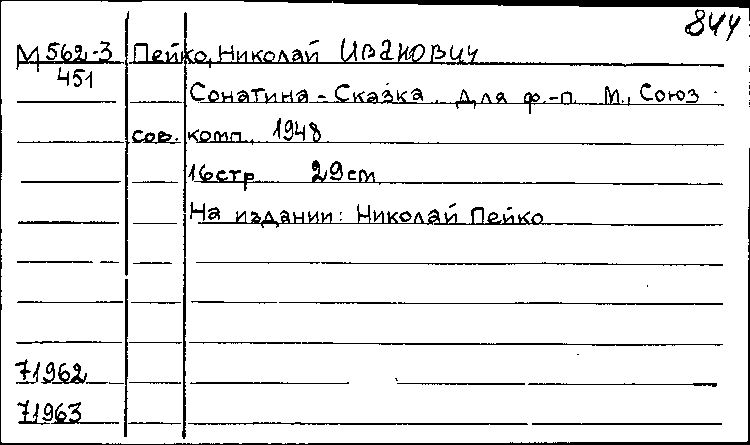 844
М 562-3 Пейко, Николай Иванович
451
Сонатина-Сказка. Для ф.-п. М., Союз
сов. комп., 1948
16стр 29см
На издании: Николай Пейко
71962
71963